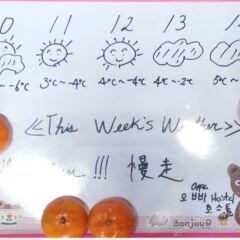 0 11 12 13 1
~-6℃ 3℃~-4℃ 4℃~-4℃ 4℃~-2℃ 5℃~
≪This Week's Weather≫
!!! 慢走
오빠 Hostel
호스텔
BonjouR